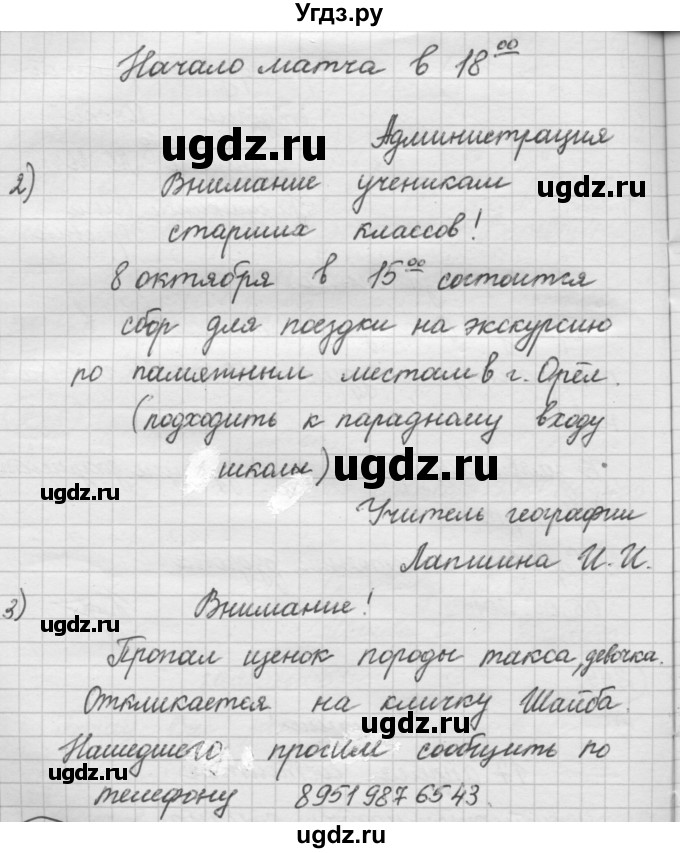 Угдз.ру
Начало матча в 18⁰⁰
Администрация
ugdz.ru
2) Внимание ученикам
ugdz.ru
старших классов!
8 октября в 15⁰⁰ состоится
сбор для поездки на экскурсию
по памятным местам в г. Орёл.
(подходить к парадному входу
школы)
ugdz.ru
ugdz.ru
Учитель географии
Лапшина И. И.
3) Внимание!
ugdz.ru
Пропал щенок породы такса, девочка.
Откликается на кличку Шайба.
ugdz.ru
Нашедшего просим сообщить по
ugdz.ru
телефону 89519876543.
ugdz.ru